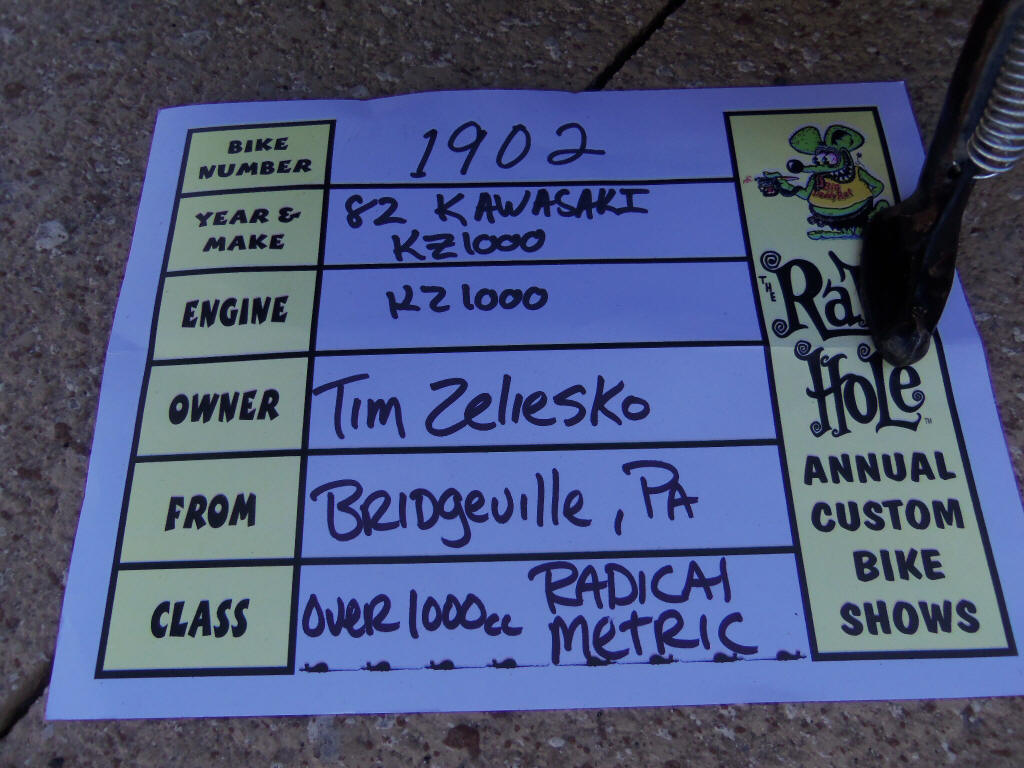 BIKE NUMBER
1902
YEAR & MAKE
82 KAWASAKI
KZ1000
ENGINE
KZ1000
OWNER
Tim Zeliesko
FROM
Bridgeville, PA
CLASS
OVER 1000cc RADICAl METRIC
THE
RaT
HoLe
TM
ANNUAL
CUSTOM
BIKE
SHOWS